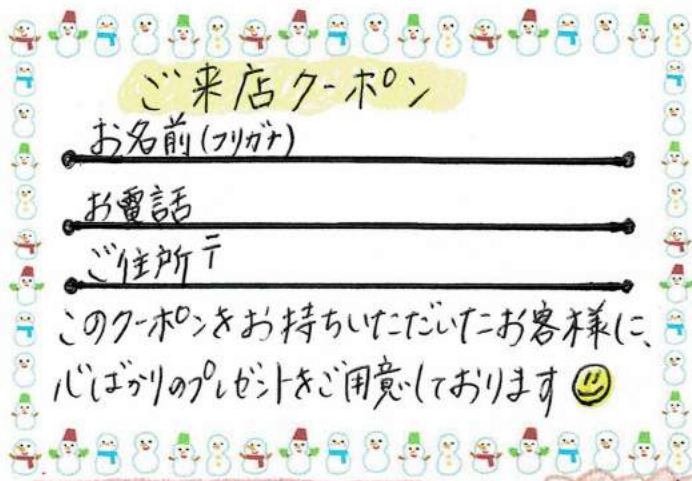 ご来店クーポン
お名前(フリガナ)
お電話
ご住所 〒
このクーポンをお持ちいただいたお客様に、
心ばかりのプレゼントをご用意しております